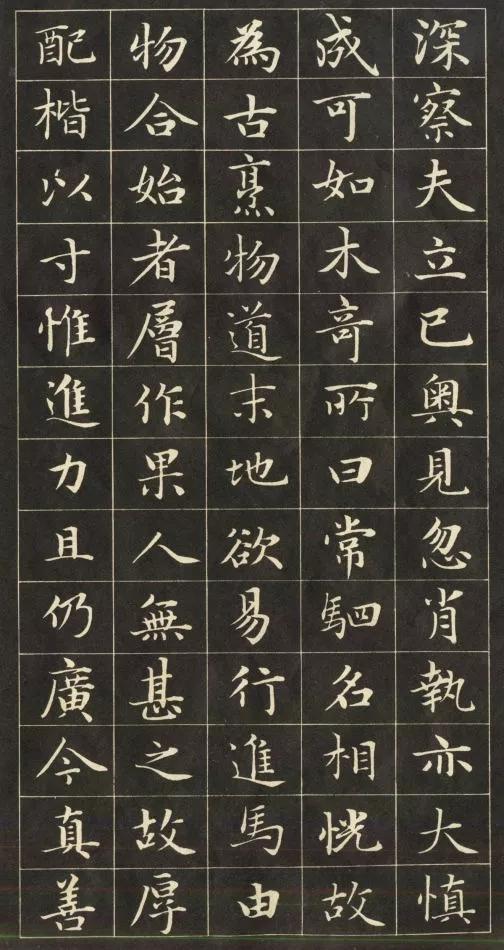 深察夫立已奧見忽肖執亦大慎
成可如木奇所曰常駟名相恍故
為古烹物道末地欲易行進馬由
物合始者層作果人無甚之故厚
配楷以寸惟進力且仍廣今真善